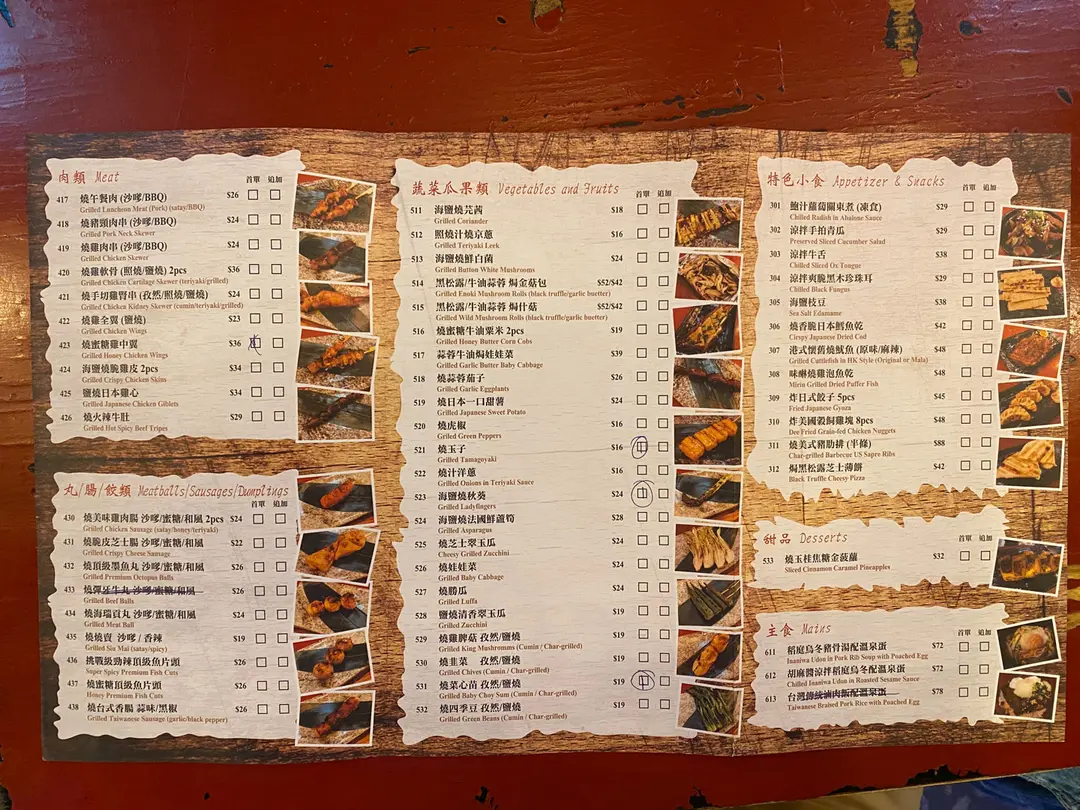 肉類 Meat
首單 追加
417 燒午餐肉 (沙嗲/BBQ) $26
Grilled Luncheon Meat (Pork) (satay/BBQ)
418 燒豬頸肉串 (沙嗲/BBQ) $24
Grilled Pork Neck Skewer
419 燒雞肉串 (沙嗲/BBQ) $24
Grilled Chicken Skewer
420 燒雞軟骨 (照燒/鹽燒) 2pcs $36
Grilled Chicken Cartilage Skewer (teriyaki/grilled)
421 燒手切雞腎串 (孜然/照燒/鹽燒) $24
Grilled Chicken Kidney Skewer (cumin/teriyaki/grilled)
422 燒雞全翼 (鹽燒) $23
Grilled Chicken Wings
423 燒蜜糖雞中翼 $36
Grilled Honey Chicken Wings
424 海鹽燒脆雞皮 2pcs $34
Grilled Crispy Chicken Skins
425 鹽燒日本雞心 $34
Grilled Japanese Chicken Giblets
426 燒火辣牛肚 $29
Grilled Hot Spicy Beef Tripes
丸/腸/餃類 Meatballs/Sausages/Dumplings
首單 追加
430 燒美味雞肉腸 沙嗲/蜜糖/和風 2pcs $24
Grilled Chicken Sausage (satay/honey/teriyaki)
431 燒脆皮芝士腸 沙嗲/蜜糖/和風 $22
Grilled Crispy Cheese Sausage
432 燒頂級墨魚丸 沙嗲/蜜糖/和風 $26
Grilled Premium Octopus Balls
433 燒彈牙牛丸 沙嗲/蜜糖/和風 $26
Grilled Beef Balls
434 燒海瑞貢丸 沙嗲/蜜糖/和風 $24
Grilled Meat Ball
435 燒燒賣 沙嗲/香辣 $19
Grilled Siu Mai (satay/spicy)
436 挑戰級勁辣頂級魚片頭 $26
Super Spicy Premium Fish Cuts
437 燒蜜糖頂級魚片頭 $26
Honey Premium Fish Cuts
438 燒台式香腸 蒜味/黑椒 $26
Grilled Taiwanese Sausage (garlic/black pepper)
蔬菜瓜果類 Vegetables and Fruits
首單 追加
511 海鹽燒芫茜 $18
Grilled Coriander
512 照燒汁燒京蔥 $16
Grilled Teriyaki Leek
513 海鹽燒鮮白菌 $24
Grilled Button White Mushrooms
514 黑松露/牛油蒜蓉 焗金菇包 $52/$42
Grilled Enoki Mushroom Rolls (black truffle/garlic buetter)
515 黑松露/牛油蒜蓉 焗什菇 $52/$42
Grilled Wild Mushroom Rolls (black truffle/garlic buetter)
516 燒蜜糖牛油粟米 2pcs $19
Grilled Honey Butter Corn Cobs
517 蒜蓉牛油焗娃娃菜 $39
Grilled Garlic Butter Baby Cabbage
518 燒蒜蓉茄子 $26
Grilled Garlic Eggplants
519 燒日本一口甜薯 $16
Grilled Japanese Sweet Potato
520 燒虎椒 $16
Griled Green Peppers
521 燒玉子 $16
Grilled Tamagoyaki
522 燒汁洋蔥 $16
Grilled Onions in Teriyaki Sauce
523 海鹽燒秋葵 $24
Grilled Ladyfingers
524 海鹽燒法國鮮蘆筍 $28
Grilled Asparagus
525 燒芝士翠玉瓜 $24
Cheesy Grilled Zucchini
526 燒娃娃菜 $24
Grilled Baby Cabbage
527 燒勝瓜 $24
Grilled Luffa
528 鹽燒清香翠玉瓜 $19
Grilled Zucchini
529 燒雞脾菇 孜然/鹽燒 $19
Grilled King Mushromms (Cumin / Char-grilled)
530 燒韭菜 孜然/鹽燒 $19
Grilled Chives (Cumin / Char-grilled)
531 燒菜心苗 孜然/鹽燒 $19
Grilled Baby Choy Sum (Cumin / Char-grilled)
532 燒四季豆 孜然/鹽燒 $19
Grilled Green Beans (Cumin / Char-grilled)
特色小食 Appetizer & Snacks
首單 追加
301 鮑汁蘿蔔關東煮 (凍食) $29
Chilled Radish in Abalone Sauce
302 涼拌手拍青瓜 $29
Preserved Sliced Cucumber Salad
303 涼拌牛舌 $38
Chilled Sliced Ox Tongue
304 涼拌爽脆黑木珍珠耳 $29
Chilled Black Fungus
305 海鹽枝豆 $38
Sea Salt Edamame
306 燒香脆日本鱈魚乾 $42
Cirspy Japanese Dried Cod
307 港式懷舊燒魷魚 (原味/麻辣) $48
Grilled Cuttlefish in HK Style (Original or Mala)
308 味醂燒雞泡魚乾 $48
Mirin Grilled Dried Puffer Fish
309 炸日式餃子 5pcs $45
Fried Japanese Gynza
310 炸美國穀飼雞塊 8pcs $48
Dee Fried Grain-fed Chicken Nuggets
311 燒美式豬肋排 (半條) $88
Char-grilled Barbecue US Sapre Ribs
312 焗黑松露芝士薄餅 $42
Black Truffle Cheesy Pizza
甜品 Desserts
首單 追加
533 燒玉桂焦糖金菠蘿 $32
Sliced Cinnamon Caramel Pineapples
主食 Mains
首單 追加
611 稻庭烏冬豬骨湯配溫泉蛋 $72
Inaniwa Udon in Pork Rib Soup with Poached Egg
612 胡麻醬涼拌稻庭烏冬配溫泉蛋 $72
Chilled Inaniwa Udon in Roasted Sesame Sauce
613 台灣傳統滷肉飯配溫泉蛋 $78
Taiwanese Braised Pork Rice with Poached Egg